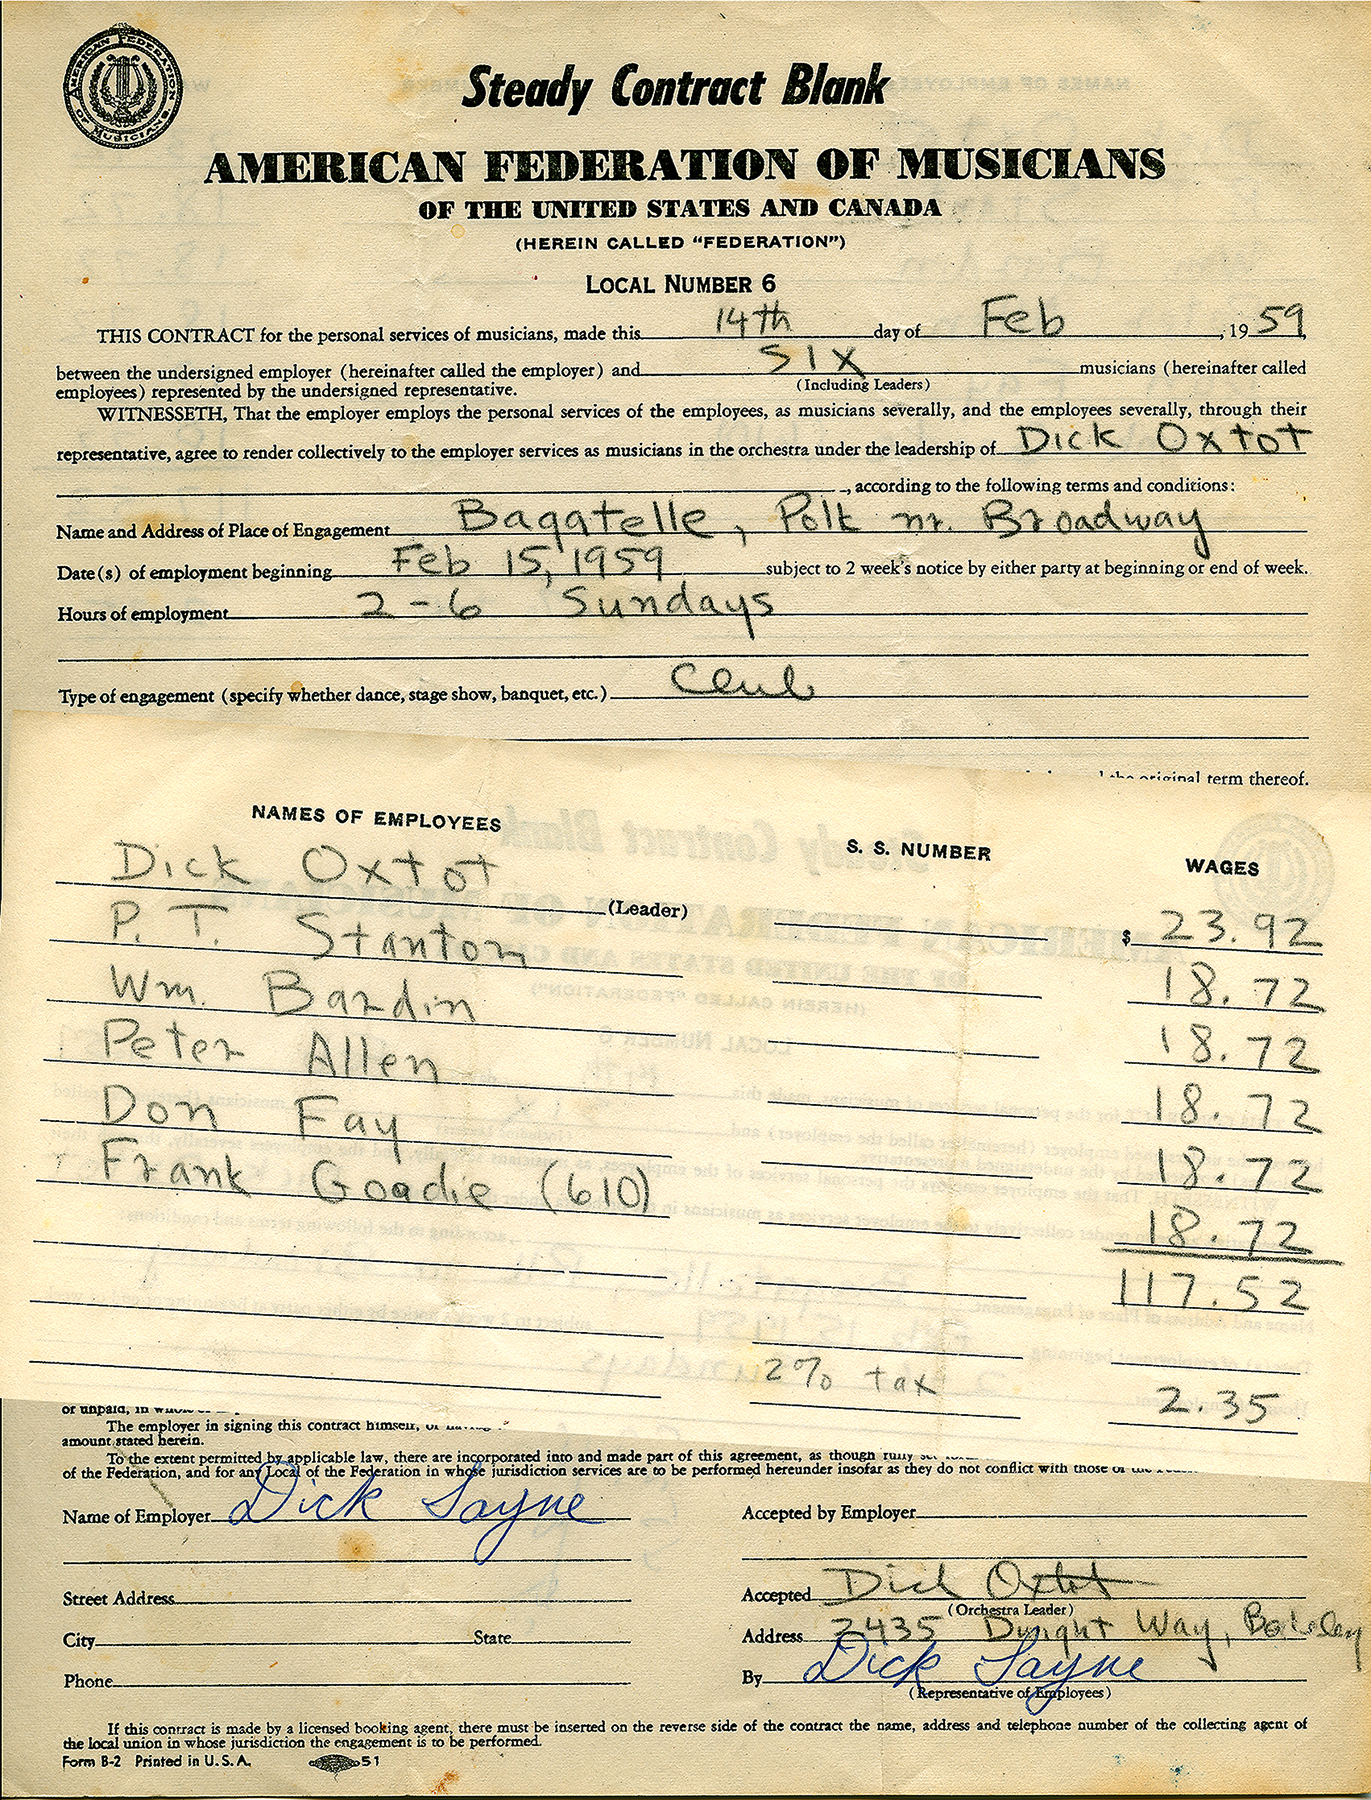 AMERICAN FEDERATION OF MUSICIANS.
Steady Contract Blank
AMERICAN FEDERATION OF MUSICIANS
OF THE UNITED STATES AND CANADA
(HEREIN CALLED "FEDERATION")
LOCAL NUMBER 6
THIS CONTRACT for the personal services of musicians, made this 14th day of Feb, 19 59,
between the undersigned employer (hereinafter called the employer) and SIX musicians (hereinafter called
(Including Leaders)
employees) represented by the undersigned representative.
WITNESSETH, That the employer employs the personal services of the employees, as musicians severally, and the employees severally, through their
representative, agree to render collectively to the employer services as musicians in the orchestra under the leadership of Dick Oxtot
, according to the following terms and conditions:
Name and Address of Place of Engagement Bagatelle, Polk nr. Broadway
Date(s) of employment beginning Feb 15, 1959 subject to 2 week's notice by either party at beginning or end of week.
Hours of employment 2-6 Sundays
Type of engagement (specify whether dance, stage show, banquet, etc.) Club
the original term thereof.
NAMES OF EMPLOYEES S. S. NUMBER WAGES
Dick Oxtot (Leader) $ 23.92
P. T. Stanton 18.72
Wm. Bardin 18.72
Peter Allen 18.72
Don Fay 18.72
Frank Goadie (610) 18.72
117.52
2% tax 2.35
or unpaid, in
The employer in signing this contract himself, or
amount stated herein.
To the extent permitted by applicable law, there are incorporated into and made part of this agreement, as though fully
of the Federation, and for any Local of the Federation in whose jurisdiction services are to be performed hereunder insofar as they do not conflict with those of
Name of Employer Dick Sayne Accepted by Employer
Street Address Accepted Dick Oxtot
(Orchestra Leader)
City State Address 2435 Dwight Way, Berkeley
Phone By Dick Sayne
(Representative of Employees)
If this contract is made by a licensed booking agent, there must be inserted on the reverse side of the contract the name, address and telephone number of the collecting agent of
the local union in whose jurisdiction the engagement is to be performed.
Form B-2 Printed in U.S.A. 51